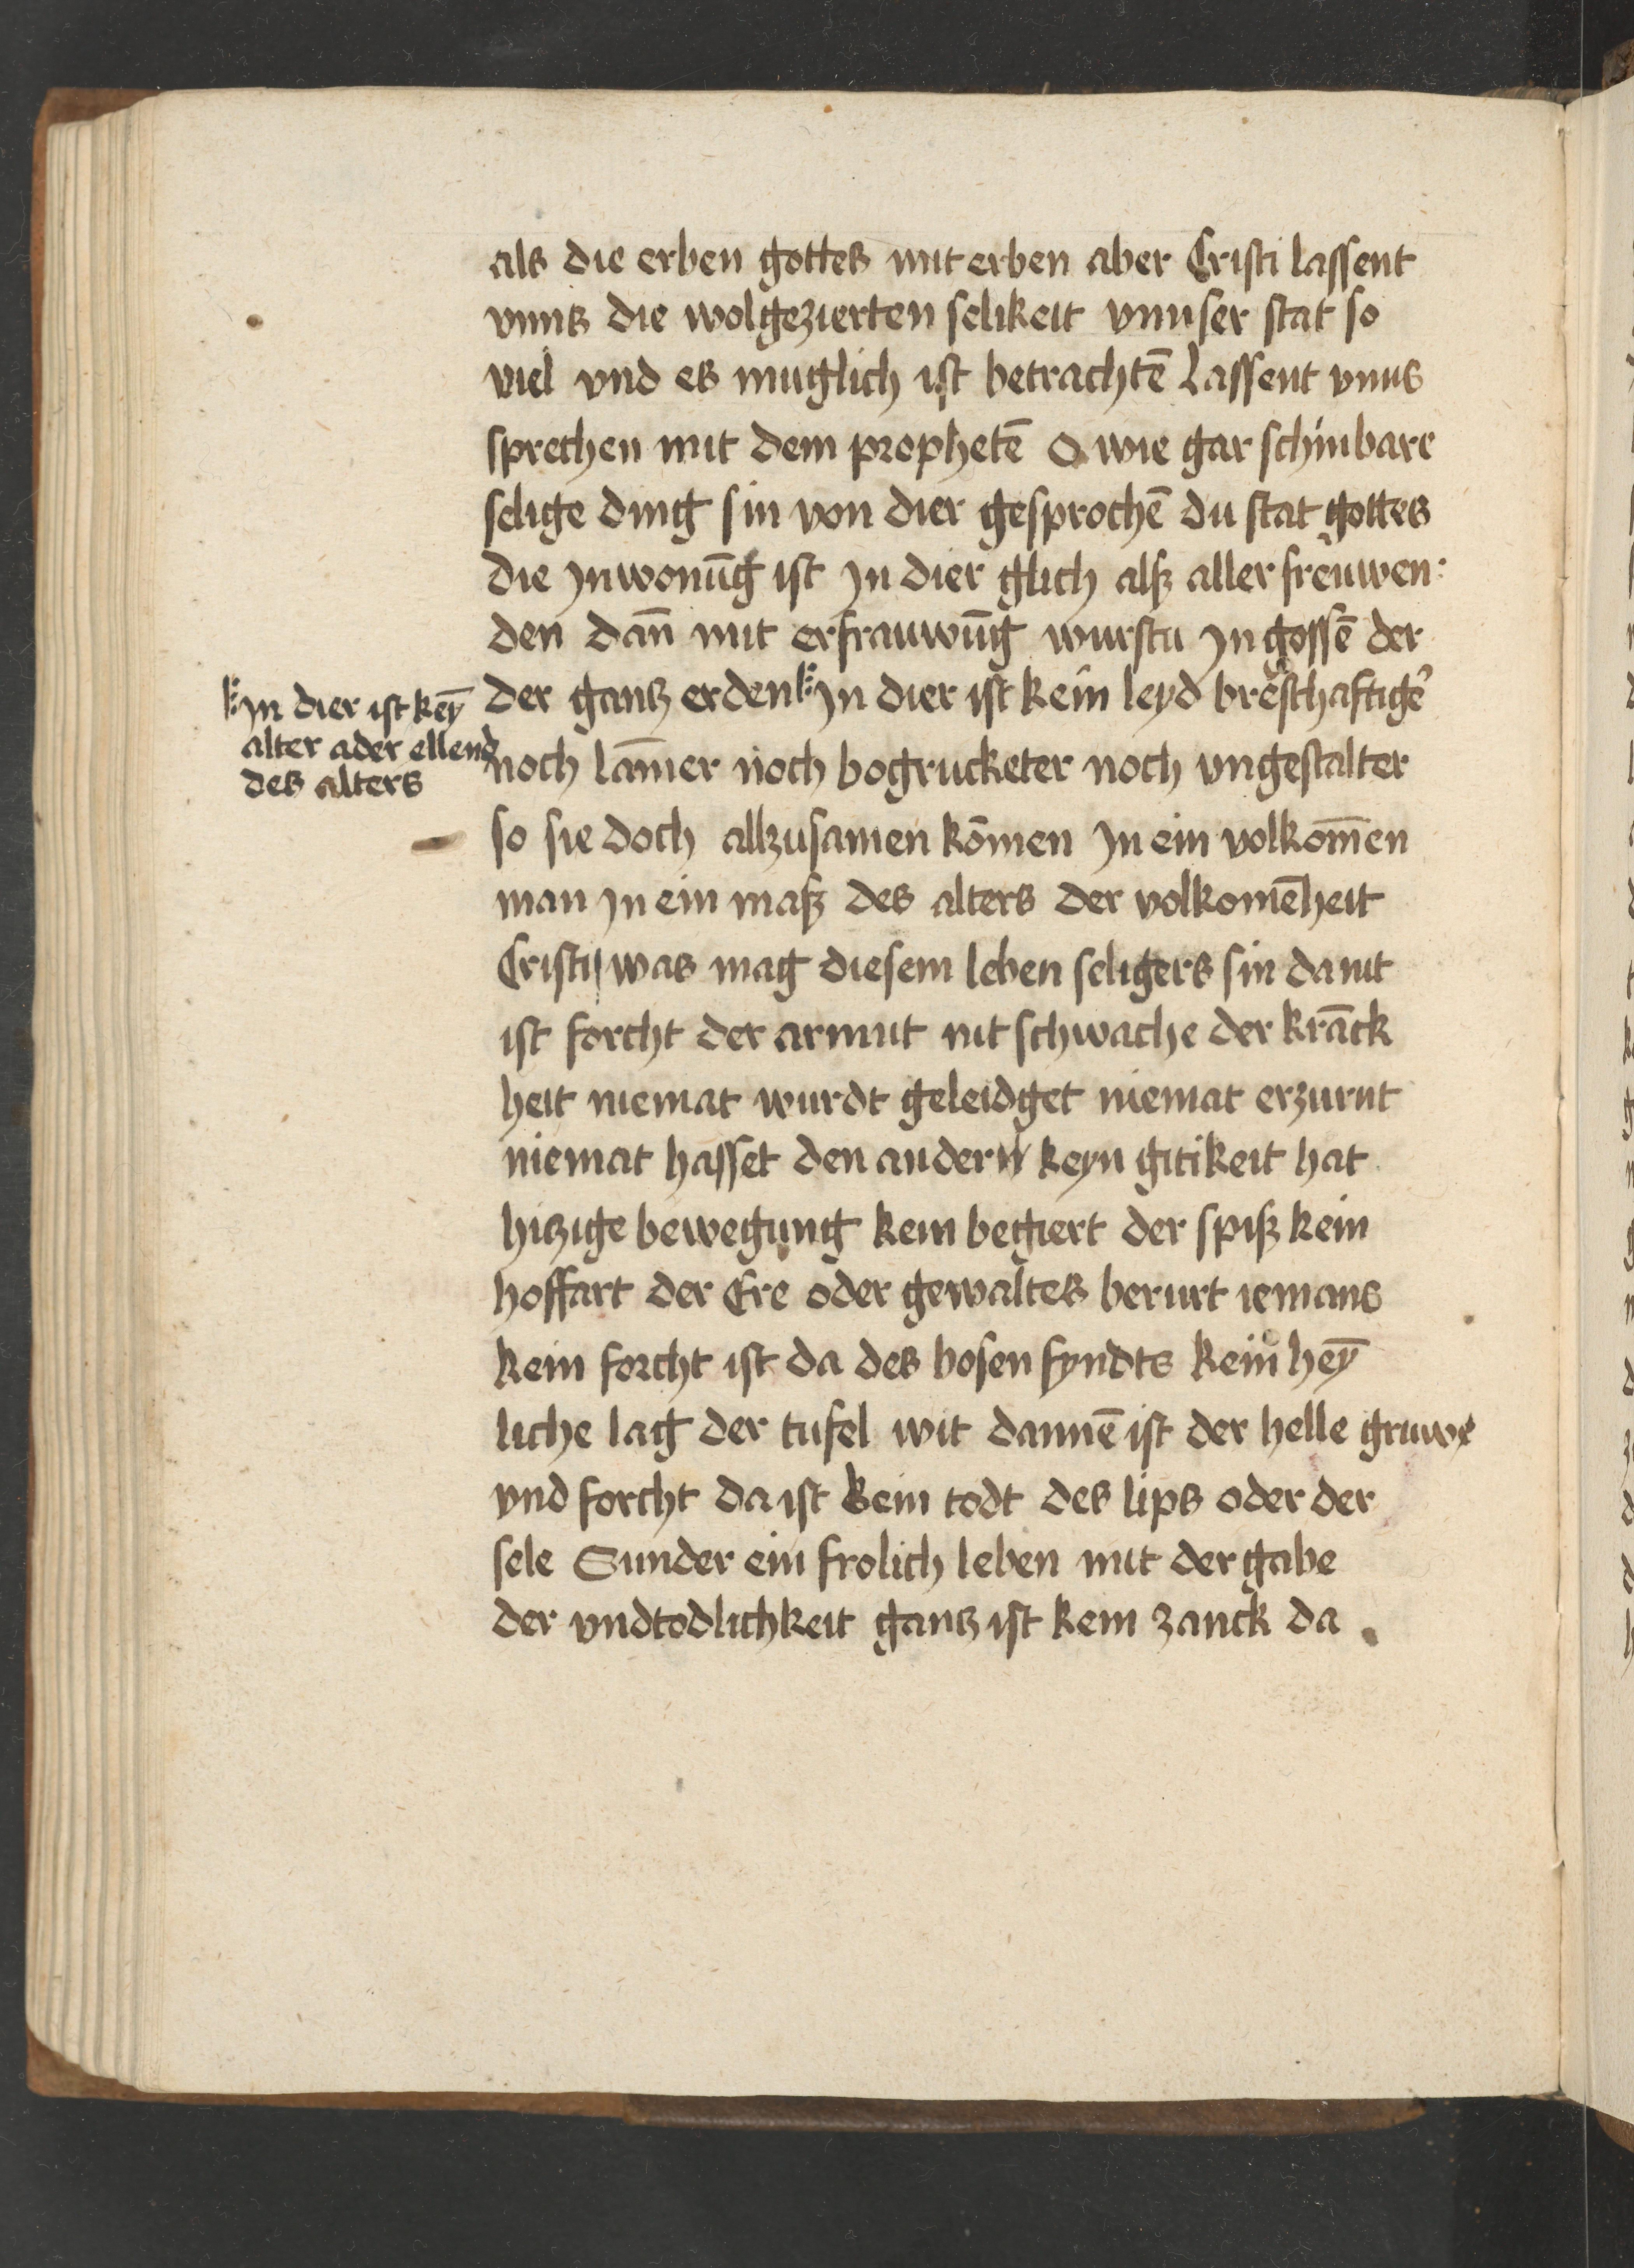 als die erben gottes mit erben aber Cristi lassent
vnns die wolgezierten selikeit vnnser stat so
viel vnd es muglich ist betrachtē Lassent vnns
sprechen mit dem prophetē O wie gar schinbare
selige ding sin von dier gesprochē du stat gottes
die Inwonūg ist In dier glich alß aller freuwen
den dañ mit erfrauwūg wurstu In gossē der
der gantz erden In dier ist kein leyd breschaftiger
In dier ist keȳ
alter ader ellend
des alters
noch lam̄er noch bogrucketer noch vngestalter
so sie doch allzusamen kōmen In ein volkom̄en
man In ein maß des alters der volkomēheit
Cristi was mag diesem leben seligers sin da nit
ist forcht der armut nit schwache der krāck
heit niemat wurdt geleidget niemat erzurnt
niemat hasset den andern keyn gitikeit hat
hitzige bewegung kein begiert der spiß kein
hoffart der Ere oder gewaltes berurt iemans
kein forcht ist da des bosen fyndts kein heȳ
liche lag der tufel wit dannē ist der helle gruwe
vnd forcht da ist kein todt des lips oder der
sele Sunder ein frolich leben mit der gabe
der vndtodlichkeit gantz ist kein zanck da